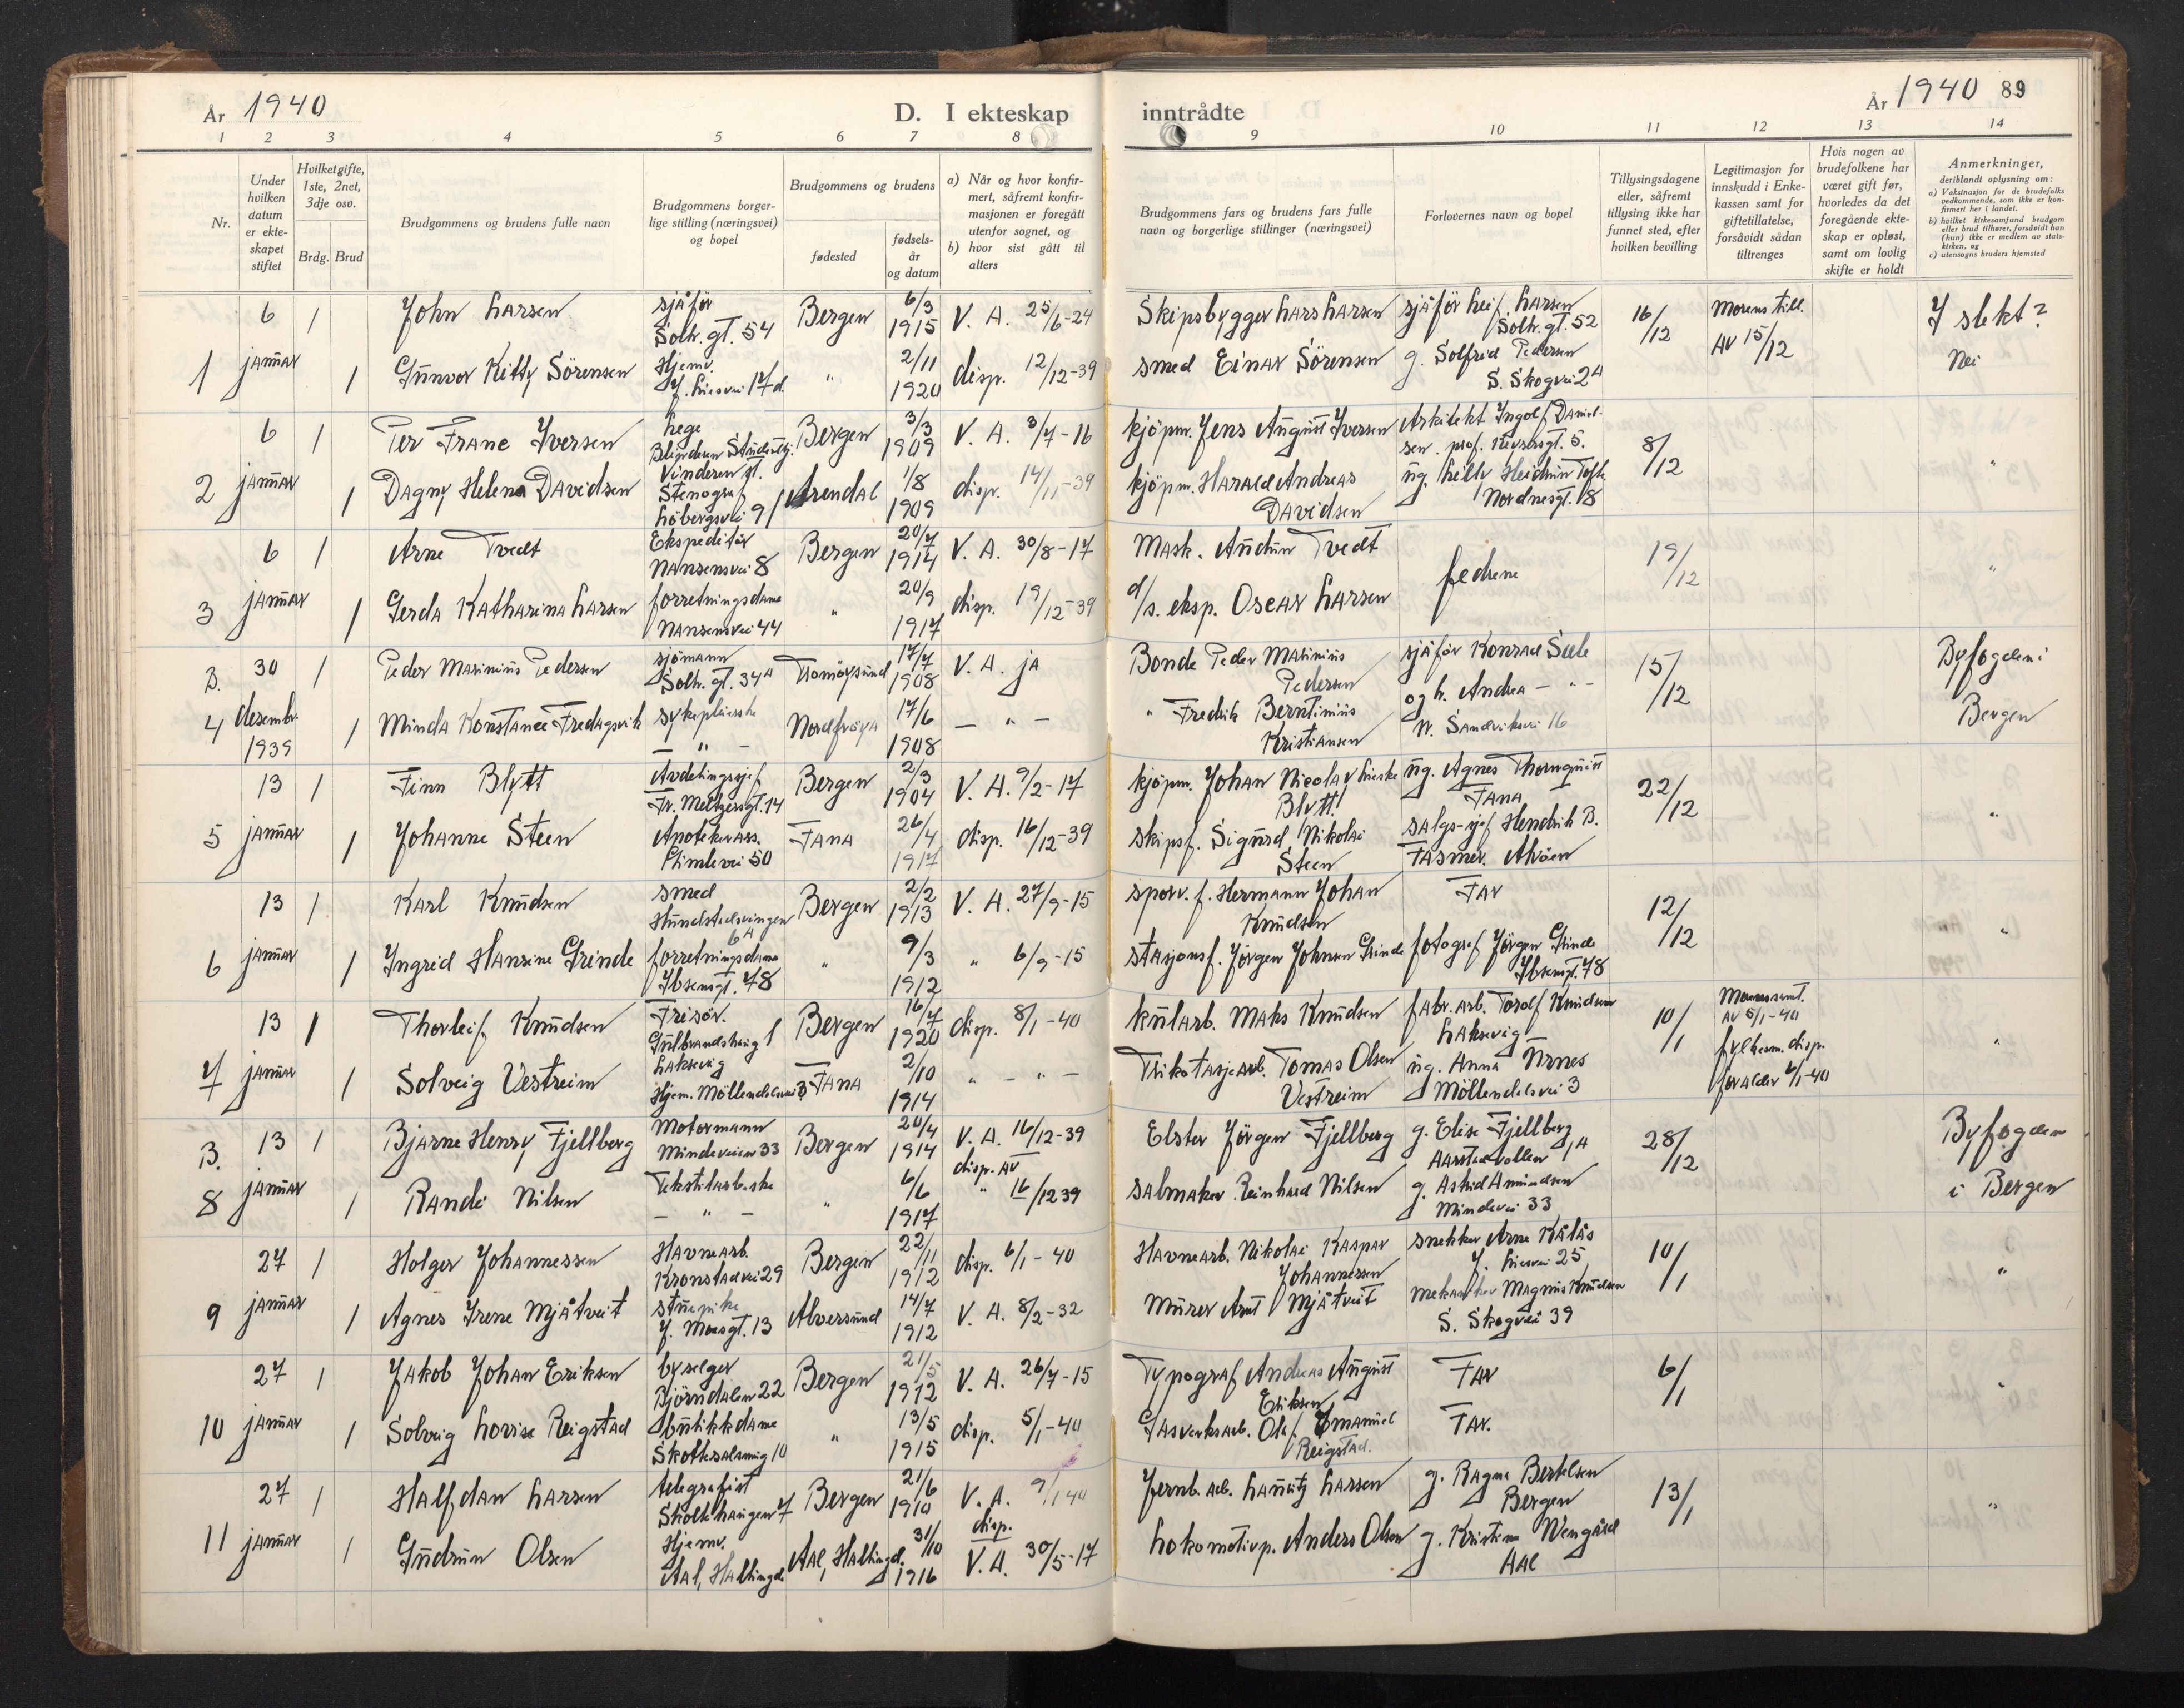 År 1940
D. I ekteskap
inntrådte
År 1940 89
1 2 3 4 5 6 7 8
9 10 11 12 13 14
Nr.
Under hvilken datum er ekteskapet stiftet
Hvilketgifte, 1ste, 2net, 3dje osv.
Brdg. Brud
Brudgommens og brudens fulle navn
Brudgommens borgerlige stilling (næringsvei) og bopel
Brudgommens og brudens
fødested
fødselsår og datum
a) Når og hvor konfirmert, såfremt konfirmasjonen er foregått utenfor sognet, og
b) hvor sist gått til alters
Brudgommens fars og brudens fars fulle navn og borgerlige stillinger (næringsvei)
Forlovernes navn og bopel
Tillysingsdagene eller, såfremt tillysing ikke har funnet sted, efter hvilken bevilling
Legitimasjon for innskudd i Enkekassen samt for giftetillatelse, forsåvidt sådan tiltrenges
Hvis nogen av brudefolkene har været gift før, hvorledes da det foregående ekteskap er opløst, samt om lovlig skifte er holdt
Anmerkninger,
deriblandt oplysning om:
a) Vaksinasjon for de brudefolks vedkommende, som ikke er konfirmert her i landet.
b) hvilket kirkesamfund brudgom eller brud tilhører, forsåvidt han (hun) ikke er medlem av statskirken, og
c) utensogns bruders hjemsted
6 1 John Larsen sjåfør Solh. gt. 54 Bergen 6/3 1915 V. A. 25/6-24 Skipsbygger Lars Larsen sjåfør Leif Larsen Solh. gt. 52 16/12 Morens till. AV 15/12 I slekt?
1 januar 1 Gunvor Kitty Sörensen Hjemv. J. Liesvei 17d " 2/11 1920 disp. 12/12-39 smed Einar Sörensen g. Solfrid Pedersen S. Skogvei 2A Nei
6 1 Per Frane Iversen Lege Blindern Studentbj. Bergen 3/3 1909 V. A. 3/7-16 kjöpm. Jens August Iversen Arkitekt Ingolf Danielsen. prof. Keysersgt. 5. 8/12
2 januar 1 Dagny Helena Davidsen Vinderen st. Stenograf Löbergsvei 91 Arendal 1/8 1909 disp. 14/11-39 kjöpm. Harald Andreas Davidsen ug. Heidrun Nordnesgt. 18 "
6 1 Arne Tvedt Ekspeditör Nansensvei 8 Bergen 20/7 1914 V. A. 30/8-17 Mask. Audun Tvedt fedrene 19/12 "
3 januar 1 Gerda Katharina Larsen forretningsdame Nansensvei 44 " 20/9 1917 disp. 19/12-39 d/s. eksp. Oscar Larsen
B. 30 1 Peder Marinius Pedersen sjömann Solh. gt. 34A Tromöysund 17/7 1908 V. A. ja Bonde Peder Marinius Pedersen sjåför Konrad Sæle 15/12 Byfogden i
4 desembr. 1939 1 Minda Konstance Fredagsvik sykepleierske — " — Nordfröya 17/6 1908 — " — " Fredrik Berntinius Kristiansen og h. Andrea — " — N. Sandviksvei 16 Bergen
13 1 Finn Blytt Avdelingssjef Fr. Meltzersgt. 14 Bergen 2/3 1904 V. A. 9/2-17 kjöpm. Johan Nicolay Lieske Blytt ug. Agnes Thornquist Fana 22/12
5 januar 1 Johanne Steen Apotekerass. Gimlevei 50 Fana 26/4 1917 disp. 16/12-39 skipsf. Sigurd Nikolai Steen salgs-sjef Hendrik B. Fasmer. Alvöen "
13 1 Karl Knudsen smed Hundstadsvingen 6A Bergen 2/2 1913 V. A. 27/9-15 sporv. f. Hermann Johan Knudsen Far 12/12
6 januar 1 Ingrid Hansine Grinde forretningsdame Ibsensgt. 78 " 9/3 1912 " 6/9-15 stasjonsf. Jörgen Johnsen Grinde fotograf Jörgen Grinde Ibsensgt. 78 "
13 1 Thorleif Knudsen Frisör. Gulbrandshaug 1 Laksevåg Bergen 16/7 1920 disp. 8/1-40 kullarb. Maks Knudsen fabr. arb. Torolf Knudsen Laksevåg 10/1 AV 5/1-40
7 januar 1 Solveig Vestreim Hjem. Möllendalsvei 3 Fana 2/10 1914 " — " — Trikotasjearb. Tomas Olsen Vestreim ug. Anna Urnes Möllendalsvei 3 fylkesm. disp. for alder 6/1-40 "
B. 13 1 Bjarne Henry Fjellberg Motormann Mindeveien 33 Bergen 20/4 1914 V. A. 16/12-39 disp. AV Elster Jörgen Fjellberg g. Elise Fjellberg Aarstadvollen 1A 28/12 Byfogden
8 januar 1 Randi Nilsen Tekstilarb.ske — " — " 6/6 1917 " 16/12 39 salmaker Reinhard Nilsen g. Astrid Amundsen Mindevei 33 i Bergen
27 1 Holger Johannessen Havnearb. Kronstadvei 29 Bergen 22/11 1912 disp. 6/1-40 Havnearb. Nikolai Kaspar Johannessen snekker Arne Kålås J. Liesvei 25 10/1 "
9 januar 1 Agnes Irene Mjåtveit stuepike J. Moesgt. 13 Alversund 14/7 1912 V. A. 8/2-32 Murer Arnt Mjåtveit mekaniker Magnus Knudsen S. Skogvei 39
27 1 Jakob Johan Eriksen byselger Björndalen 22 Bergen 21/5 1912 V. A. 26/7-15 Typograf Andreas August Eriksen Far 6/1
10 januar 1 Solveig Lovise Reigstad butikkdame Skottesalsmug 10 " 13/5 1915 disp. 5/1-40 Gasverksarb. Olaf Emanuel Reigstad. Far. "
27 1 Halfdan Larsen telegrafist Skoltehaugen 7 Bergen 21/6 1910 V. A. 9/1 40 disp. Jernb. arb. Lauritz Larsen g. Ragna Bertelsen Bergen 13/1 "
11 januar 1 Gudrun Olsen Hjemv. Aal, Hallingd. Aal, Hallingd. 31/10 1916 V. A. 30/5-17 Lokomotivp. Anders Olsen g. Kristine Wengård Aal